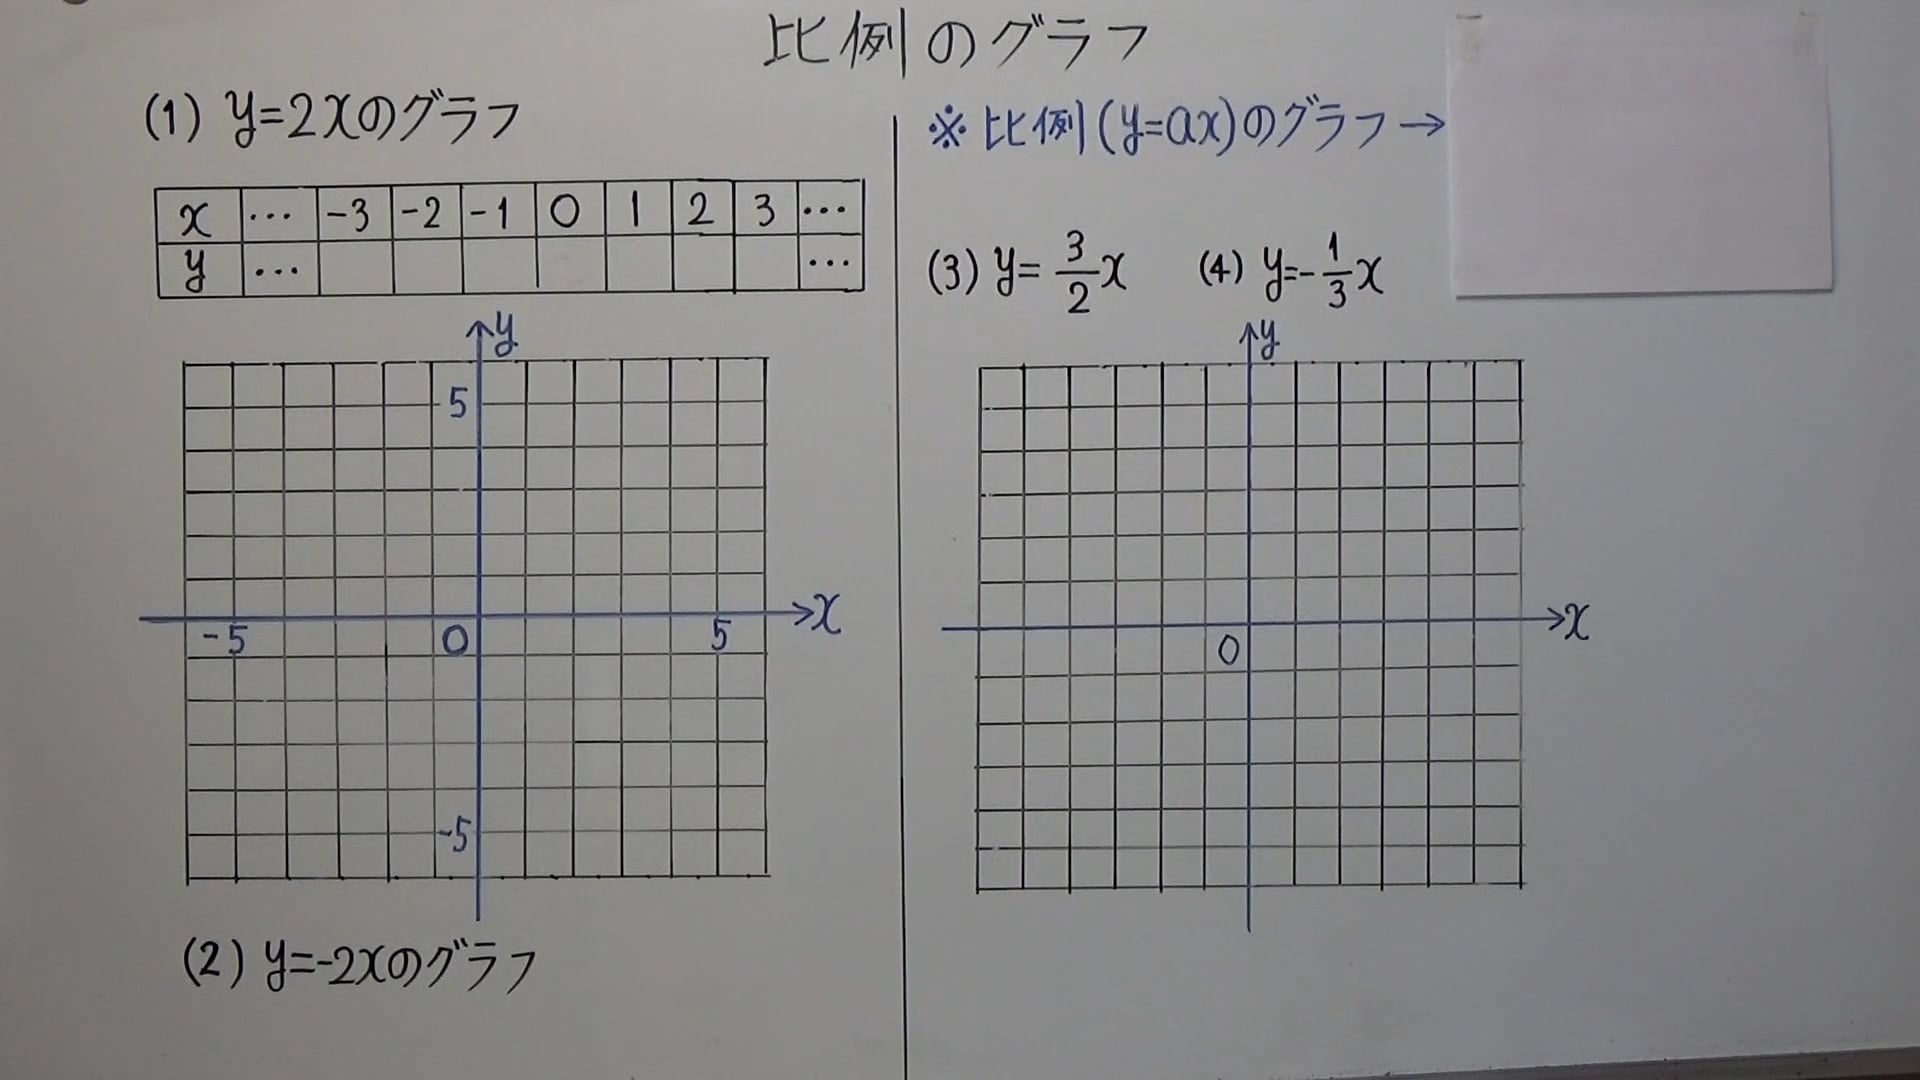 比例のグラフ
(1) y=2xのグラフ
x ... -3 -2 -1 0 1 2 3 ...
y ... ...
y
5
x
-5 0 5
-5
(2) y=-2xのグラフ
※ 比例(y=ax)のグラフ→
(3) y=3/2x (4) y=-1/3x
y
x
0